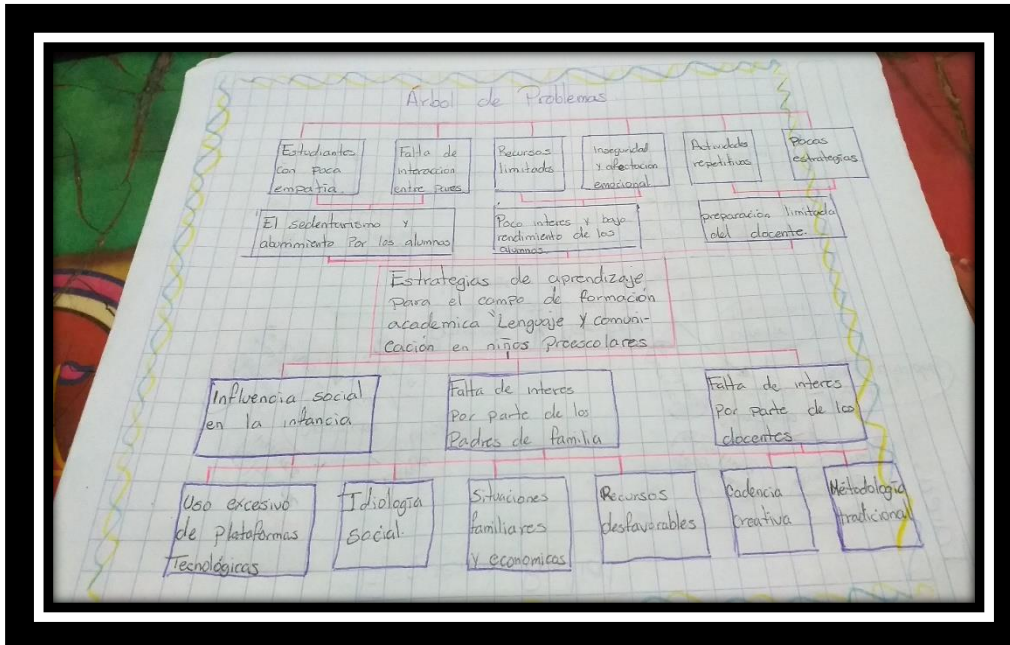 Árbol de Problemas
Estudiantes
con poca
empatía
Falta de
interaccion
entre pares
Recursos
limitados
Inseguridad
y afectacion
emocional
Actividades
repetitivas
Pocas
estrategias
El sedentarismo y
aburrimiento Por los alumnos
Poco interes y bajo
rendimiento de los
alumnos
preparación limitada
del docente.
Estrategias de aprendizaje
para el campo de formación
academica "Lenguaje y comuni-
cación en niños Preescolares
Influencia social
en la infancia
Falta de interes
Por parte de los
Padres de familia
Falta de interes
Por parte de los
docentes
Uso excesivo
de plataformas
Tecnológicas
Idiología
Social.
Situaciones
familiares
y economicas
Recursos
desfavorables
Cadencia
creativa
Metodología
tradicional